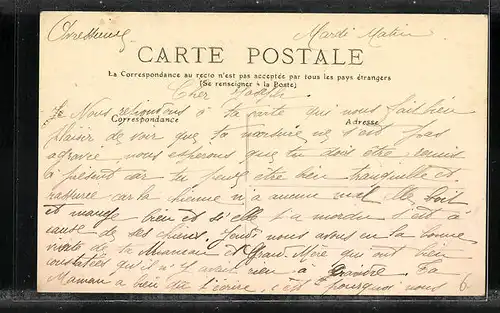 Mardi Matin
CARTE POSTALE
La Correspondance au recto n'est pas acceptée par tous les pays étrangers
(Se renseigner à la Poste)
Cher
Nous à ta carte qui nous fait bien
Correspondance Adresse
plaisir de voir que ta morsure ne s'est pas
agravée, nous esperons que tu dois être remis
à présent car tu peux être bien tranquille et
rassurée car la chienne n'a aucun mal Elle boit
et mange bien et si elle t'a mordu c'est à
cause de ses chiens. Jeudi nous avons eu la bonne
visite de ta Maman et Grand Mère qui ont bien
constatées qu'il n'y avait rien à craindre. Ta
Maman a bien dû t'écrire, c'est pourquoi nous
6